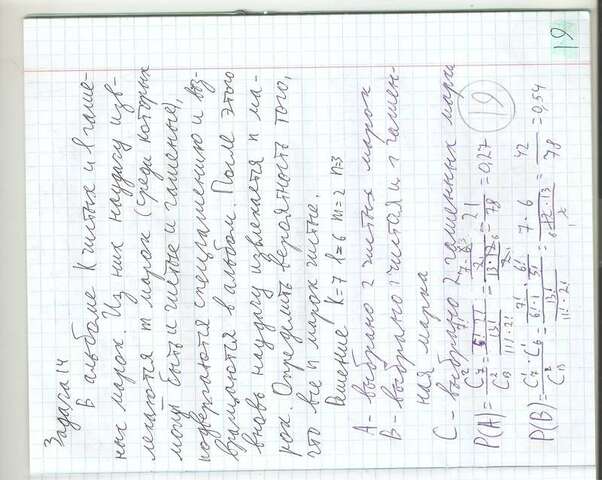 19
Задача 14
В альбоме K чистых и l гаше-
ных марок. Из них наудачу изв-
лекаются m марок (среди которых
могут быть и чистые и гашеные),
подвергаются спецгашению и воз-
вращаются в альбом. После этого
вновь наудачу извлекается n ма-
рок. Определить вероятность того,
что все n марок чистые.
Решение K=7 l=6 m=2 n=3
A - выбрано 2 чистых марок
B - выбрано 1 чистая и 1 гашен-
ная марка
C - выбрано 2 гашенных марки
P(A) = = 21/78 = 0,27
19
P(B) = = 7·6 = 42/78 = 0,54